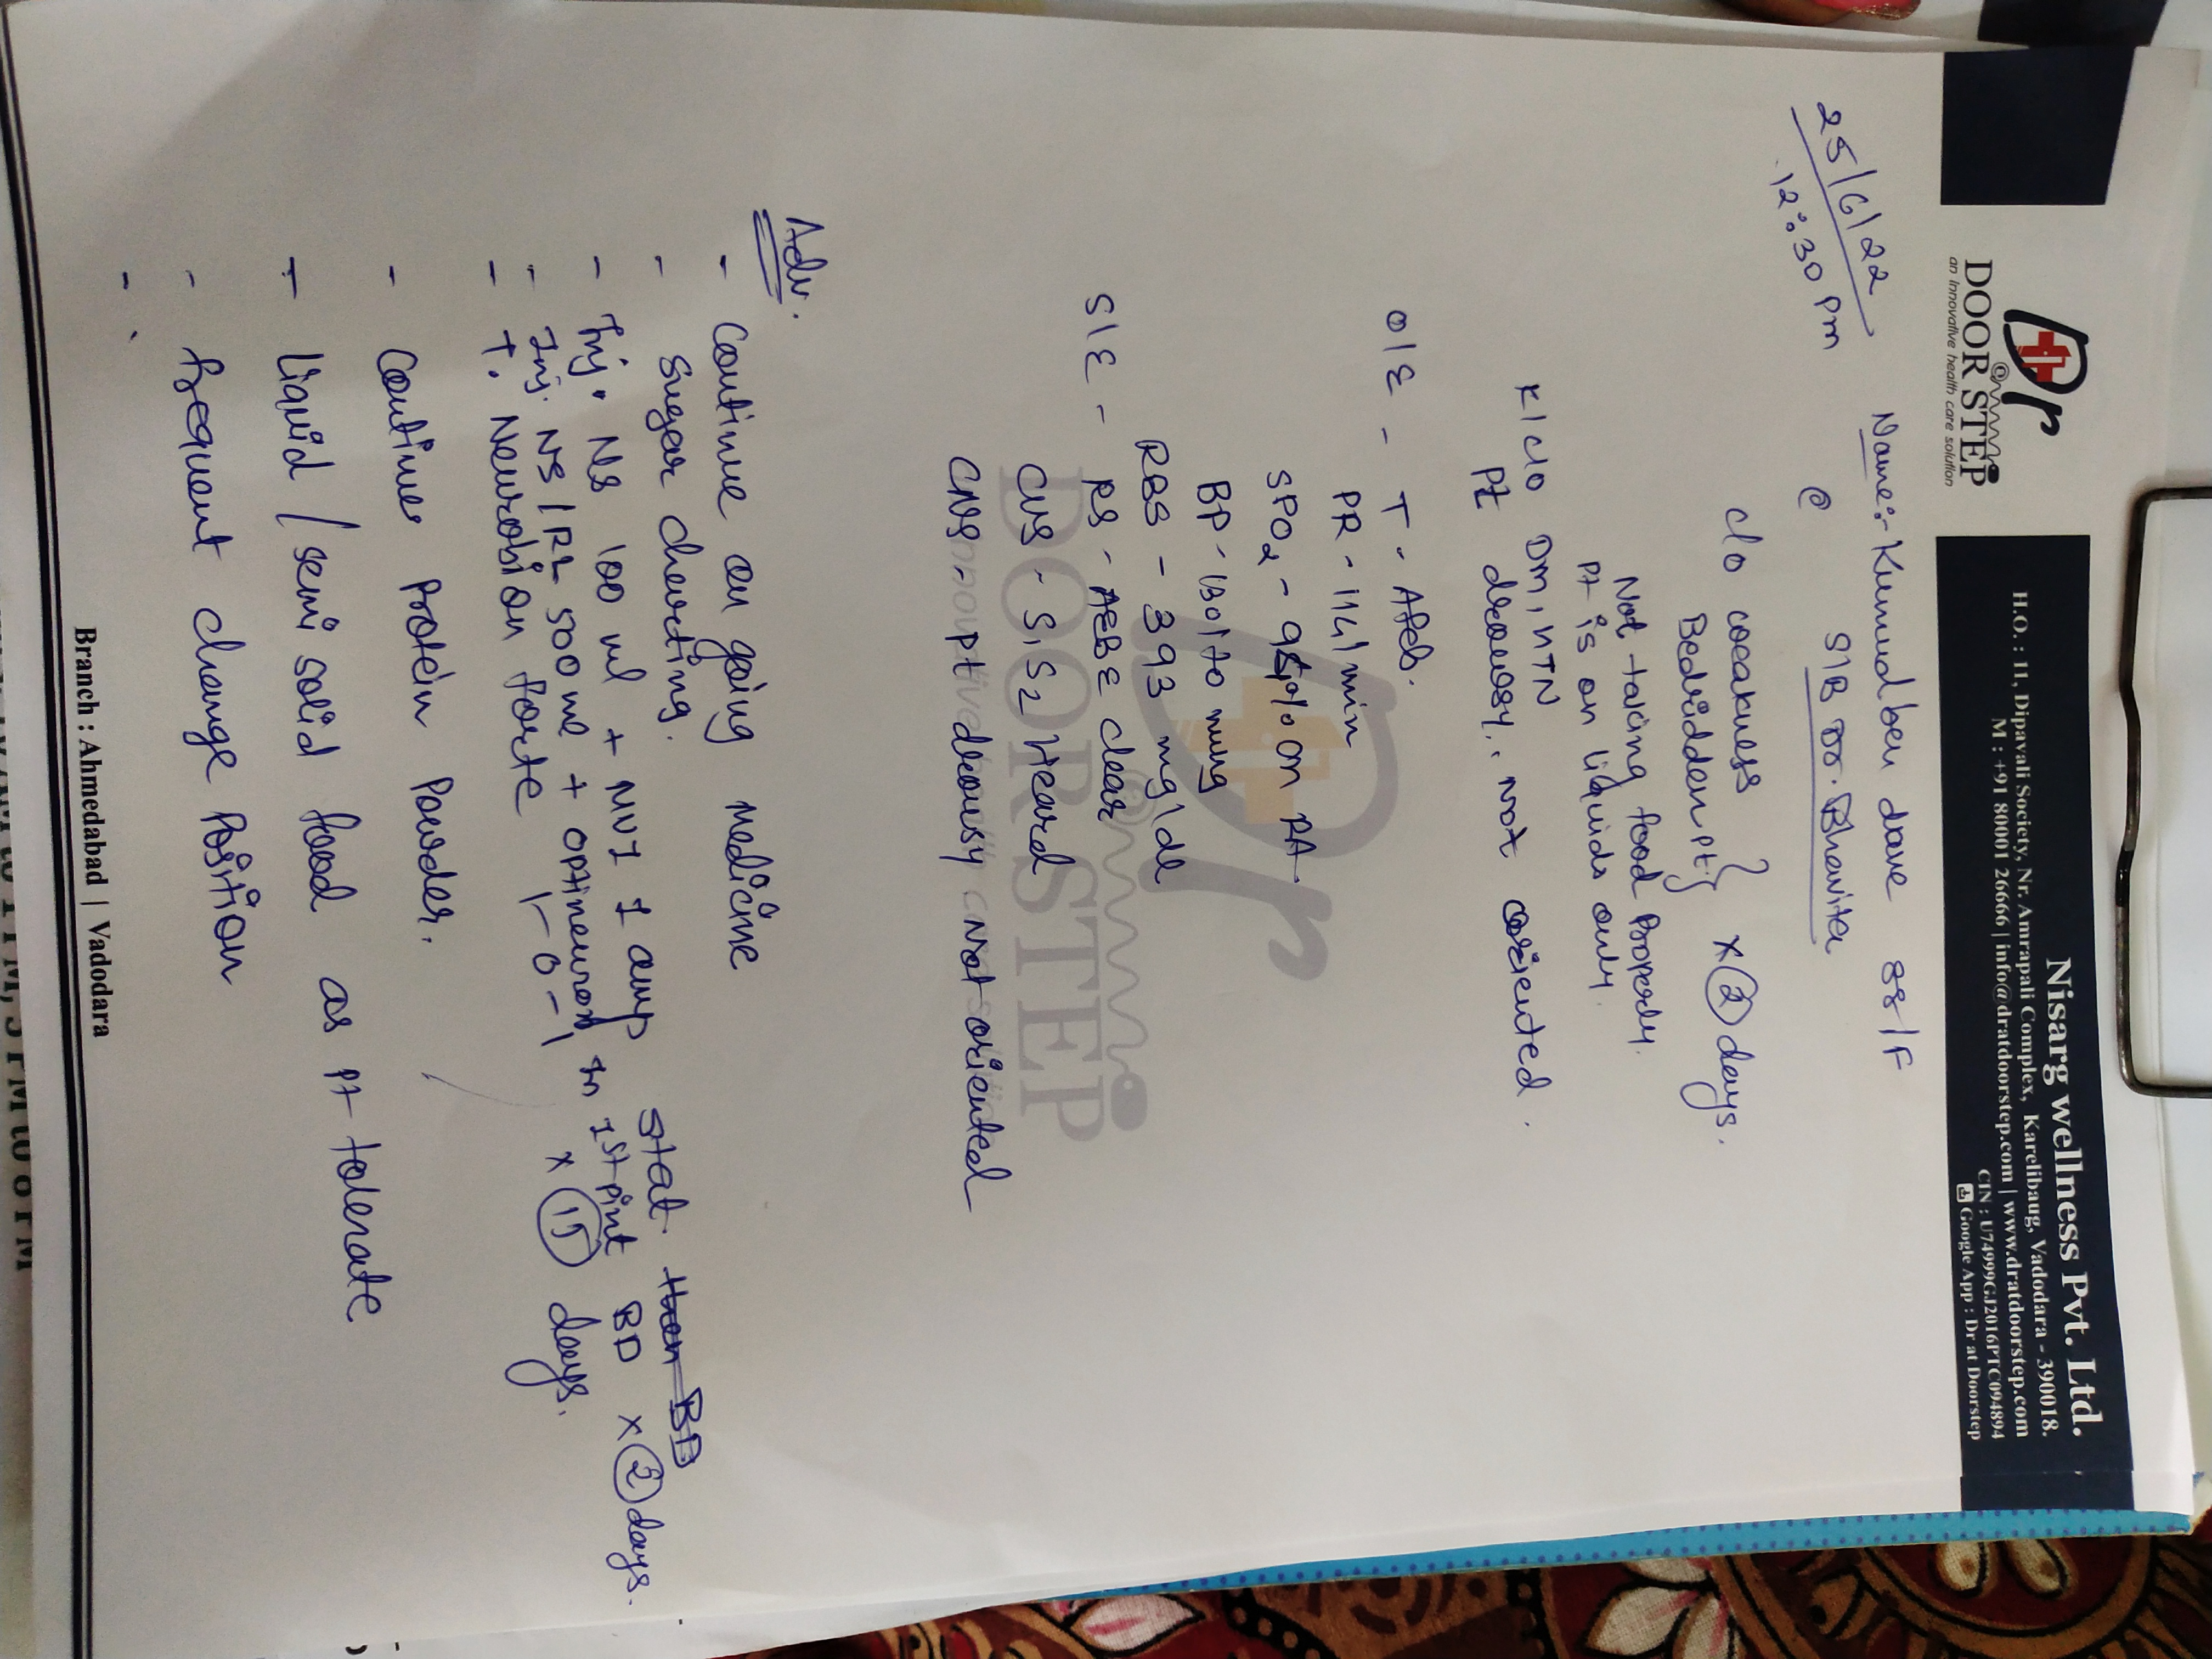 Dr
@
DOOR STEP
an innovative health care solution
Nisarg wellness Pvt. Ltd.
H.O. : 11, Dipavali Society, Nr. Amrapali Complex, Karelibaug, Vadodara - 390018.
M : +91 80001 26666 | info@dratdoorstep.com | www.dratdoorstep.com
CIN : U74999GJ2016PTC094894
Google App : Dr at Doorstep
25/6/22
12:30 Pm
Name:- Kumudben dave 88/F
@ S/B Dr. Bhavita
c/o weakness
Bedridden pt } x 2 days.
Not taking food Properly.
Pt is on liquids only.
K/c/o DM, HTN
Pt drowsy, Not oriented.
O/E - T - Afeb.
PR - 114/min
SPO2 - 94% on RA.
BP - 130/70 mmhg
RBS - 393 mg/dl
S/E - RS - AEBE clear
CVS - S1S2 Heard
CNS - Pt drowsy Not oriented
Adv.
- Continue on going medicine
- Sugar charting.
- Inj. NS 100 ml + MVI 1 amp stat. then BD
- Inj. NS/RL 500 ml + Optineuron In 1st pint BD x 2 days.
- T. Neurobion forte 1-0-1 x 15 days.
- Continue Protein Powder.
- Liquid / semi solid food as pt tolerate
- frequent change Position
-
Branch : Ahmedabad | Vadodara